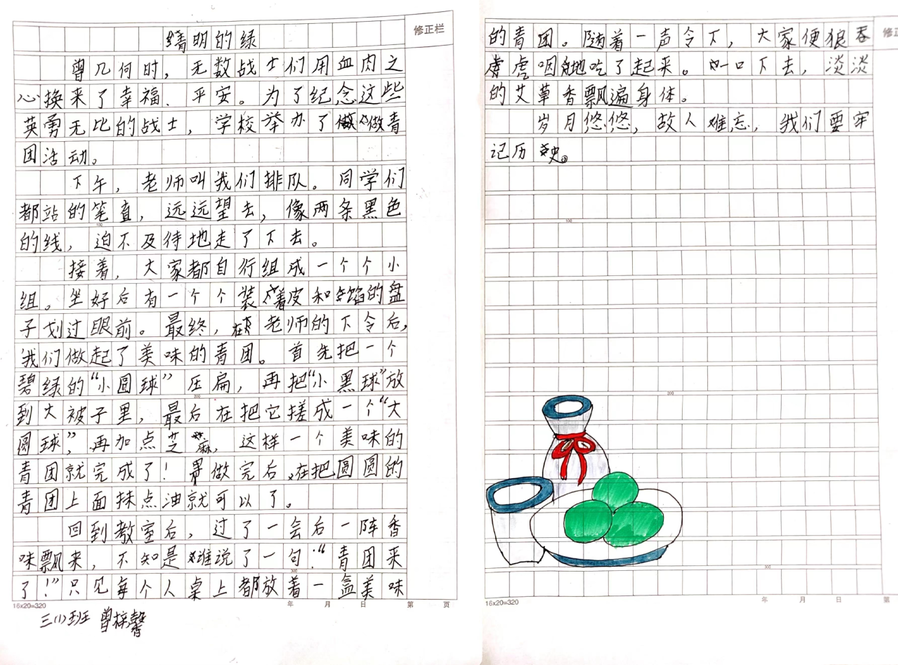 修正栏
清明的绿
曾几何时，无数战士们用血肉之
心换来了幸福、平安。为了纪念这些
英勇无比的战士，学校举办了做青
团活动。
下午，老师叫我们排队。同学们
都站的笔直，远远望去，像两条黑色
的线，迫不及待地走了下去。
接着，大家都自行组成一个个小
组。坐好后有一个个装着皮和馅的盘
子划过眼前。最终，在老师的下令后，
我们做起了美味的青团。首先把一个
碧绿的“小圆球”压扁，再把“小黑球”放
到大被子里，最后在把它搓成一个“大
圆球”，再加点芝麻，这样一个美味的
青团就完成了！做完后，在把圆圆的
青团上面抹点油就可以了。
回到教室后，过了一会后一阵香
味飘来，不知是谁说了一句：“青团来
了！”只见每个人桌上都放着一盒美味
16×20=320 年 月 日 第 页
三(1)班 曾梓馨
修正
的青团。随着一声令下，大家便狼吞
虎咽地吃了起来。一口下去，淡淡
的艾草香飘遍身体。
岁月悠悠，故人难忘，我们要牢
记历史。
16×20=320 年 月 日 第